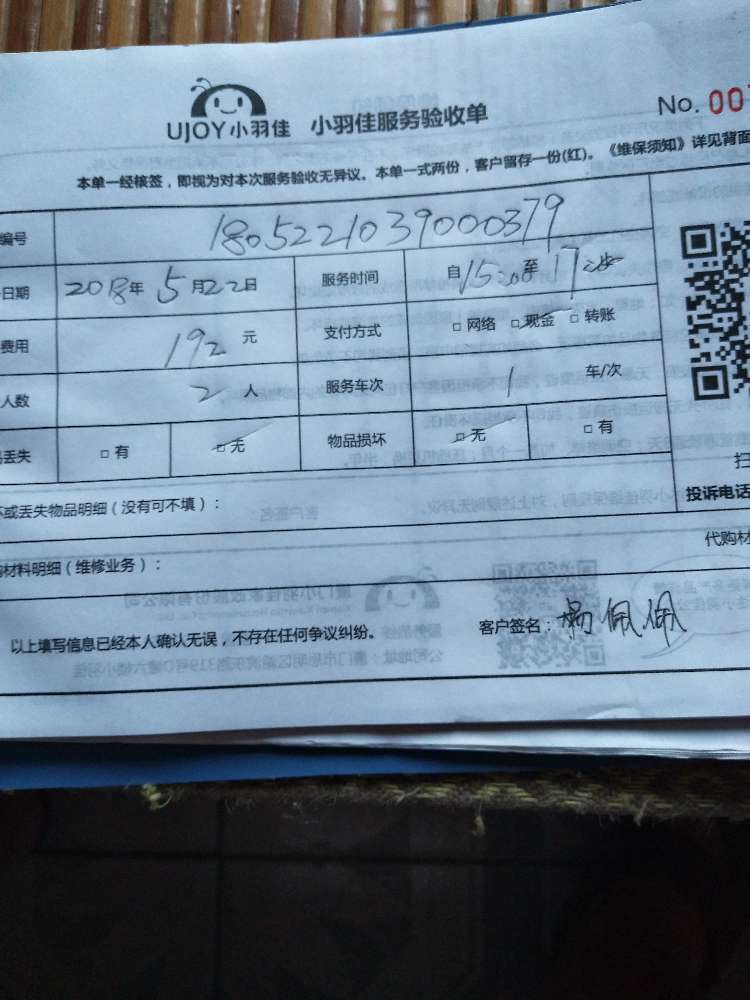 UJOY小羽佳 小羽佳服务验收单 No. 00
本单一经核签，即视为对本次服务验收无异议。本单一式两份，客户留存一份(红)。《维保须知》详见背面
编号 1805221039000379
日期 2018年 5月22日 服务时间 自15:00至17:
费用 192 元 支付方式 □ 网络 □ 现金 □ 转账
人数 2 人 服务车次 1 车/次
丢失 □ 有 □ 无 物品损坏 □ 无 □ 有
扫
坏或丢失物品明细（没有可不填）： 投诉电话
代购材
材料明细（维修业务）：
以上填写信息已经本人确认无误，不存在任何争议纠纷。 客户签名：杨佩佩